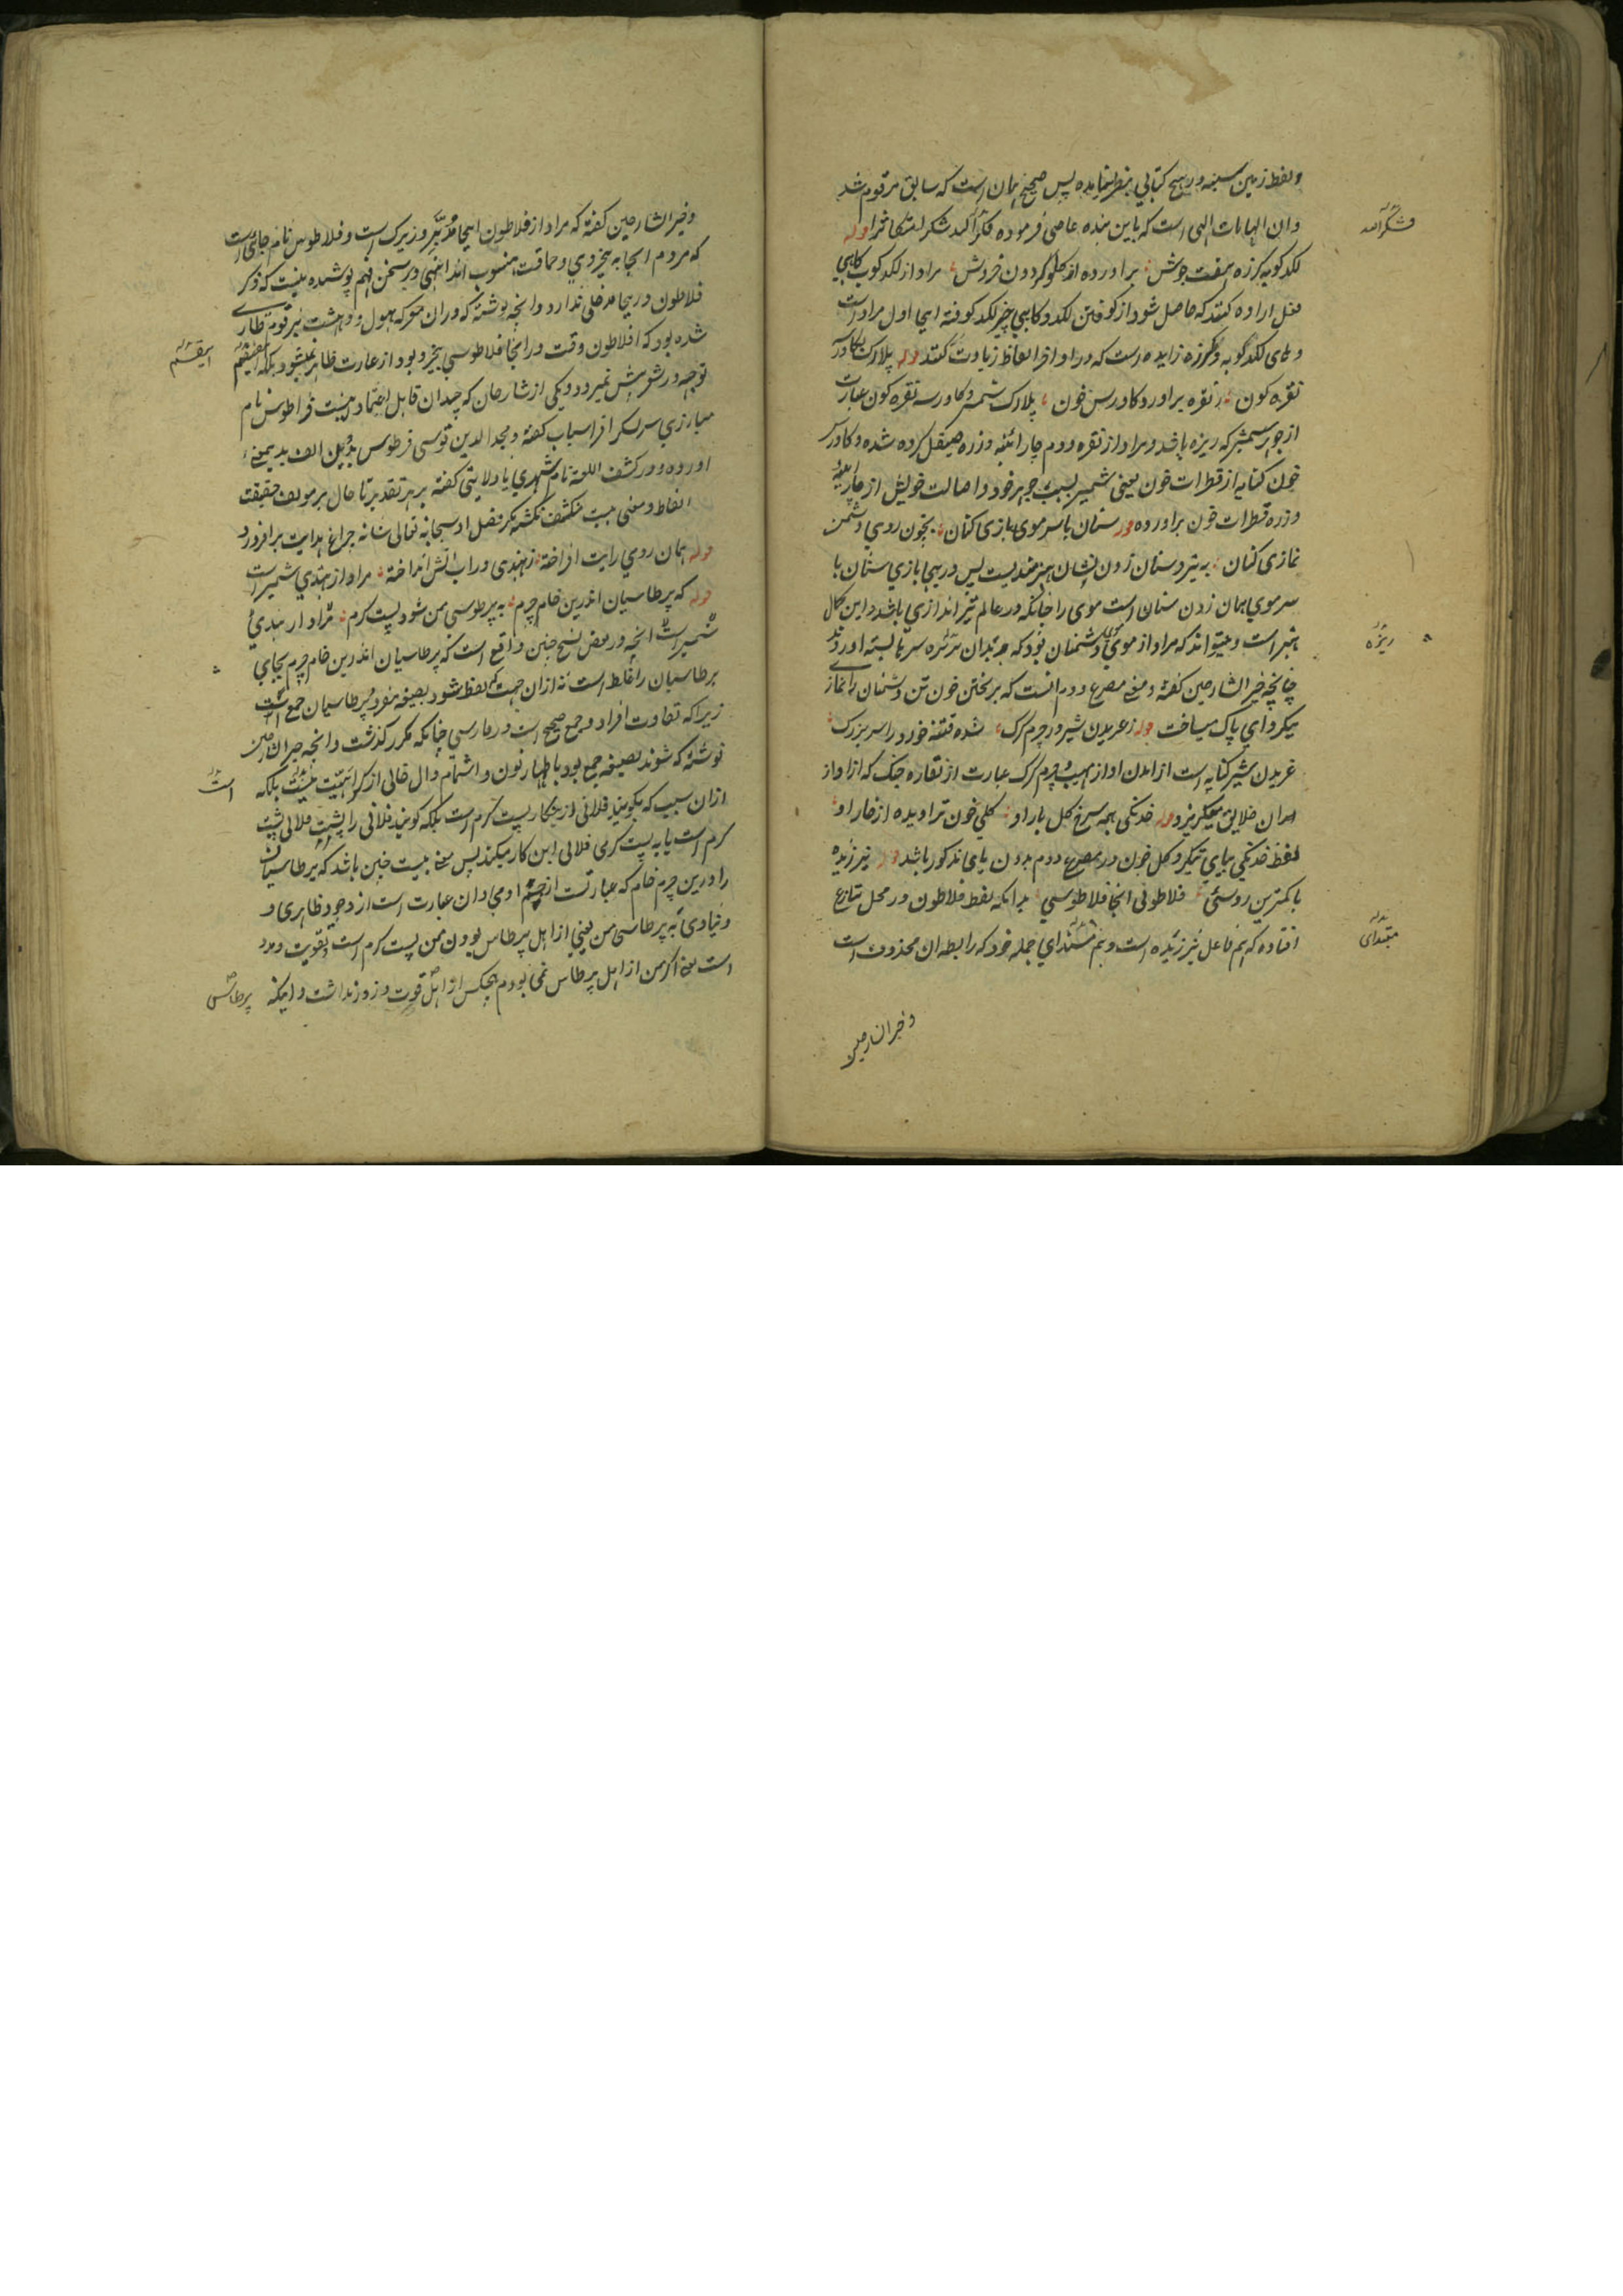 ولفظ زمین سینه در هیچ کتابی بنظر نیامده پس صحیح همان است که سابق مرقوم شد
وان الهامات الهی است که باین بنده عاصی فرموده شکر الحمد شکر قوله
لکدکوب کرزه هفت جوش برآورده از کلو کردون خروش مراد از لکدکوب کاهی
فعل اراده کنند که حاصل شود از کوفتن لکد و کاهی چیز لکد کوفته اینجا اول مراد است
و های لکدکوبه و کرزه زایده است که در اواخر الفاظ زیادت کنند قوله پلارک بکاورس
نقره کون ز نقره برآورد کاورس خون پلارک شمشیر و کاورسه نقره کون عبارت
از جوهر شمشیر که ریزه باشد و مراد از نقره دوم چارآئینه و زره صیقل کرده شده و کاورس
خون کنایه از قطرات خون یعنی شمشیر بسبب جوهر خود و اصالت خویش از چارآئینه
و زره قطرات خون برآورده قوله سنان با سر موی بازی کنان بخون روی دشمن
نمازی کنان به تیر و سنان زدن نشان هنرمندیست پس درینجا بازی سنان با
سر موی همان زدن سنان است موی را چنانکه در عالم تیراندازی باشد و این کمال
هنر است و میتواند که مراد از موی دشمنان بود که بر سر نیزه بسته آورند
چنانچه خیر الشارحین گفته و معنی مصرع دوم آنست که بریختن خون تن دشمنان را نماز
میکرد ای پاک میساخت قوله ز غریدن شیر در چرم کرک شده فتنه خورد را سر بزرک
غریدن شیر کنایه است از آمدن آواز مهیب و چرم کرک عبارت از نقاره جنک که از آواز
آن خلایق میکریزد قوله خدنکی همه سرخ کل بار او کلی خون تراویده از خار او
لفظ خدنکی بیای تنکیر و کل خون در مصرع دوم بدون یای مذکور باشد قوله نیرزیده
با کمترین روستی فلاطونی انجا فلاطوسی بدانکه لفظ فلاطون در محل تنازع
افتاده که هم فاعل نیرزیده است و هم مبتدای جمله خود که رابطه آن محذوف است
و خیر الشارحین
شکر الحمد
ریزه
مبتدای
و خیر الشارحین گفته که مراد از فلاطون اینجا مدبر و زیرک است و فلاطوس نام جای است
که مردم آنجا به بیخردی و حماقت منسوب اند انتهی و بر سخن فهم پوشیده نیست که ذکر
فلاطون درینجا مدخلی ندارد و آنچه نوشته که در آن معرکه هول و دهشت بر قوم طاری
شده بود که افلاطون وقت در آنجا فلاطوسی بیخرد بود از عبارت ظاهر نمیشود بلکه
توجه در شورش نمیرود و یکی از شارحان که چندان قابل اعتماد نیست فراطوس نام
مبارزی سر لشکر افراسیاب گفته و مجد الدین قوسی فرطوس بدون الف بدین معنی
آورده و در کشف اللغة نام شهری یا ولایتی گفته بر هر تقدیر تا حال بر مولف حقیقت
الفاظ و معنی بیت منکشف نکشته مکر فضل او سبحانه تعالی شانه چراغ هدایت برافروزد
قوله همان رومی رایت افراخته ز هندی در آب آتش انداخته مراد از هندی شمشیر است
قوله که پرطاسیان اندرین خام چرم به پرطوسی من شود پست کرم مراد از هندی
شمشیر است آنچه در بعض نسخ چنین واقع است که پرطاسیان اندرین خام چرم بجای
پرطاسیان را غلط است نه از آن جهت که لفظ شود بصیغه مفرد و پرطاسیان جمع است
زیرا که تفاوت افراد و جمع صحیح است در فارسی چنانکه مکرر گذشت و آنچه خیر الشارحین
نوشته که شوند بصیغه جمع بود باظهار نون و اشمام دال خالی از کراهیت نیست بلکه
از آن سبب که نکویند فلانی ازین کار پست کرم است بلکه کویند فلانی را پشت فلانی پشت
کرم است یا به پشت کرمی فلانی این کار میکند پس معنی بیت چنین باشد که پرطاسیان
را درین چرم خام که عبارت از جسم آدمی و آن عبارت است از وجود ظاهری و
بنیادی به پرطاسی من یعنی از اهل پرطاس بودن من پشت کرم است و تقویت و مدد
است یعنی اکر من از اهل پرطاس نمی بودم هیچکس از اهل قوت و زور نداشت و اینکه
است
پرطاسی